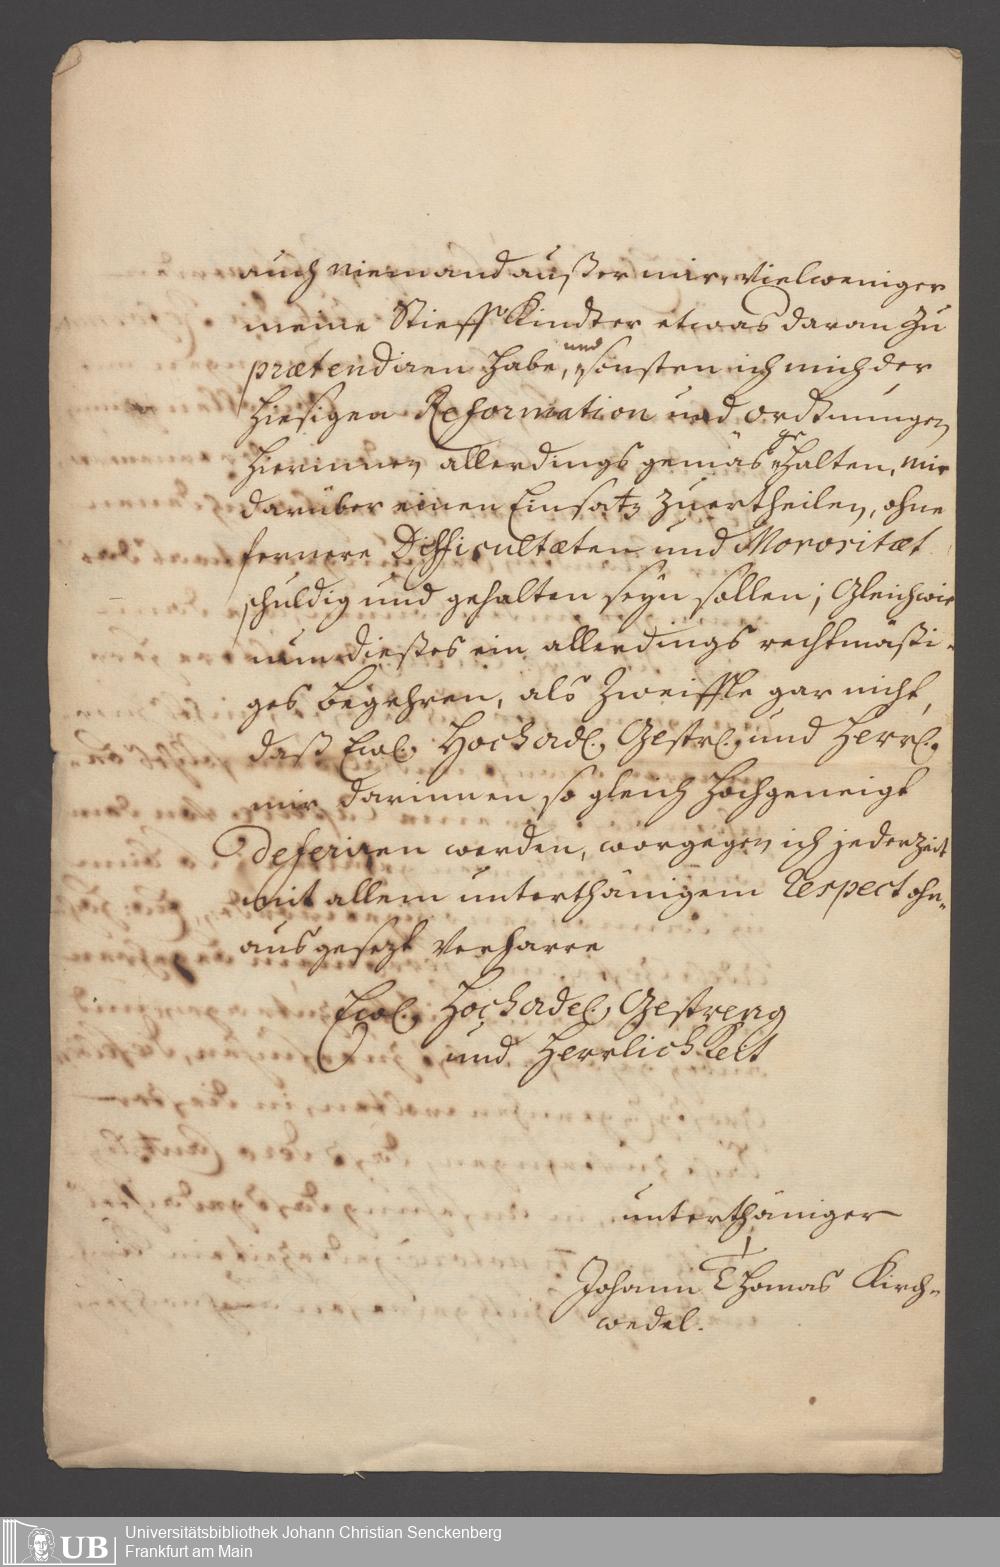 auch niemand außer mir, vielweniger
meine Stieff Kindter etwas daran zu
prætendiren habe, und sonsten ich mich der
hiesigen Reformation und Ordtnungen
hierinnen allerdings gemäs gehalten, mir
darüber einen Einsatz zuertheilen, ohne
fernere Difficultæten und Morositæt
schuldig und gehalten seyn sollen; Gleichwie
nun dießes ein allerdings rechtmäßi-
ges begehren, als zweiffle gar nicht,
daß Ewl. Hochadl. Gestrl. und Herrl.
mir darinnen so gleich hochgeneigt
deferiren werden, worgegen ich jederzeit
mit allem unterthänigem Respect ohn-
ausgesezt verharre
Ewl. Hochadel. Gestreng
und Herrlichkeit
unterthäniger
Johann Thomas Kirch-
wedel.
UB
Universitätsbibliothek Johann Christian Senckenberg
Frankfurt am Main